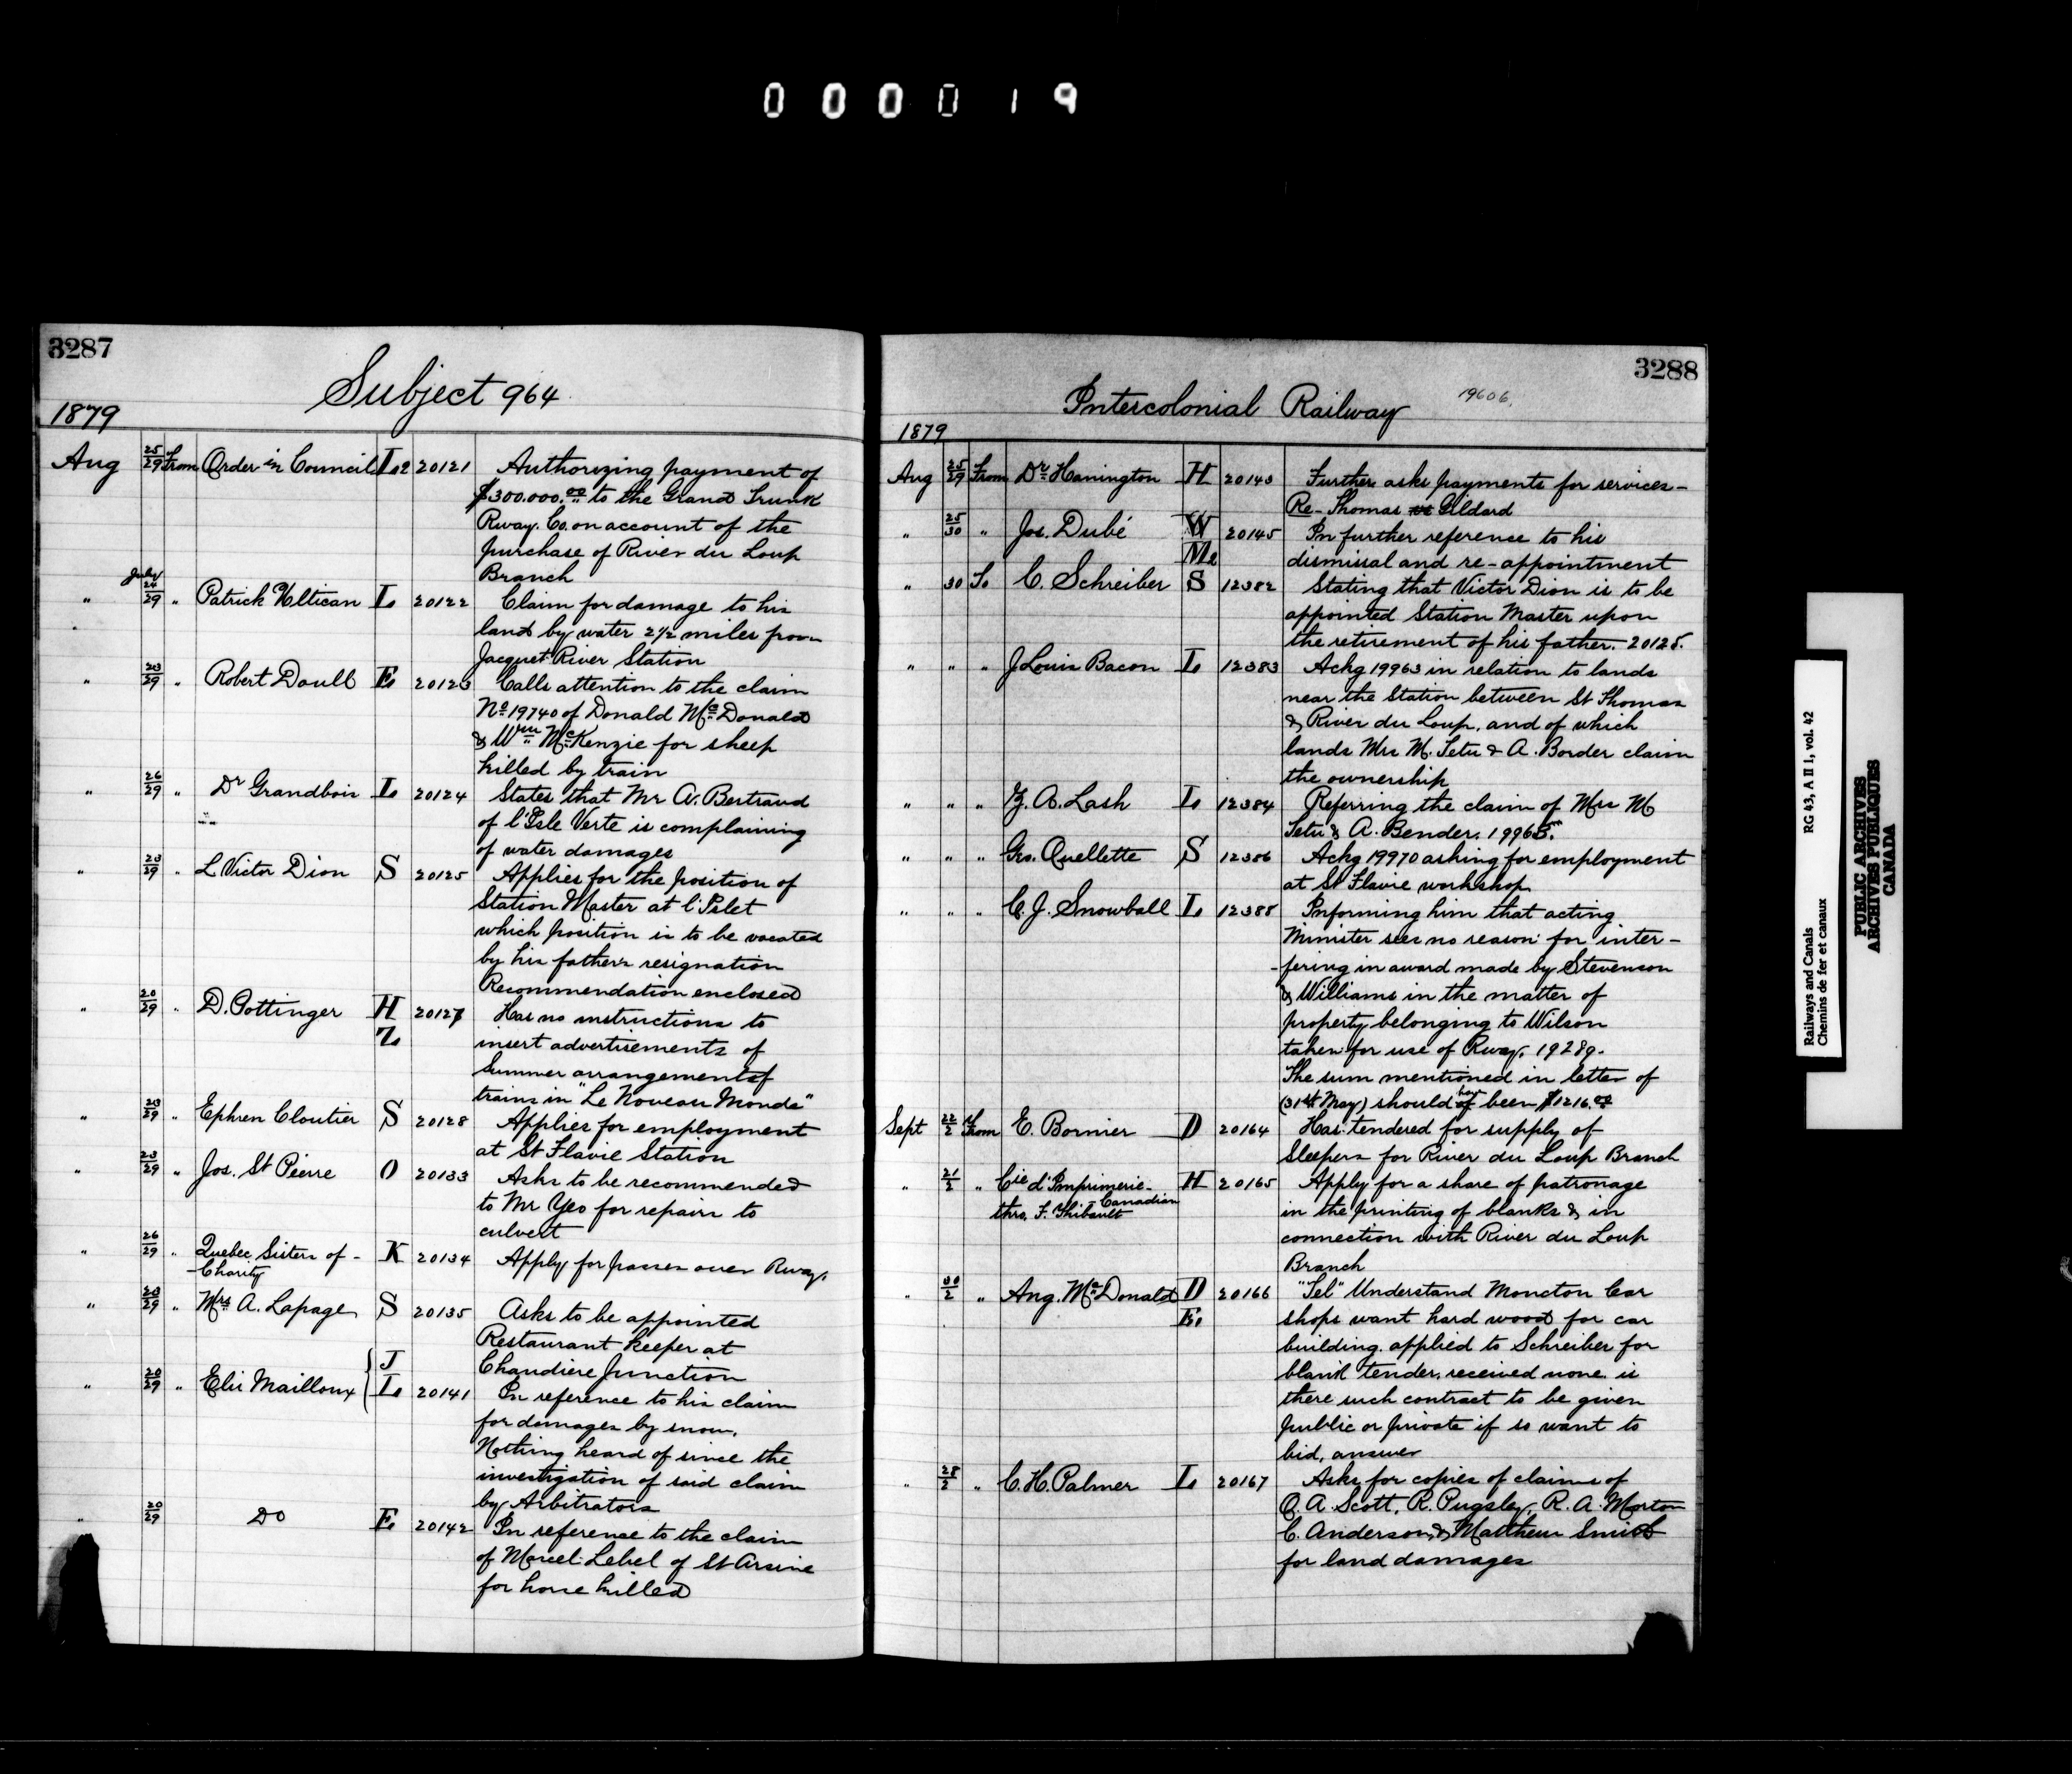 000019
3287
Subject 964
1879
Aug 25/29 From Order in Council L2 20121 Authorizing payment of
$300.000.00 to the Grand Trunk
Rway. Co. on account of the
purchase of River du Loup
Branch
" July 24/29 " Patrick L 20122 Claim for damage to his
land by water 2 1/2 miles from
Jacquet River Station
" 23/29 " Robert Doull E 20123 Calls attention to the claim
No 19740 of Donald McDonald
& Wm McKenzie for sheep
killed by train
" 26/29 " Dr Grandbois L 20124 States that Mr A. Bertrand
of l'Isle Verte is complaining
of water damages
" 23/29 " L Victor Dion S 20125 Applies for the position of
Station Master at l'Islet
which position is to be vacated
by his father's resignation
Recommendation enclosed
" 20/29 " D. Pottinger H Z 20127 Has no instructions to
insert advertisements of
Summer arrangements of
trains in "Le Noveau Monde"
" 23/29 " Ephren Cloutier S 20128 Applies for employment
at St Flavie Station
" 23/29 " Jos. St Pierre O 20133 Asks to be recommended
to Mr Yeo for repairs to
culvert
" 26/29 " Quebec Sisters of - K 20134 Apply for passes over Rway.
- Charity
" 23/29 " Mrs A. Lapage S 20135 Asks to be appointed
Restaurant keeper at
Chaudiere Junction
" 20/29 " Elie Mailloux { J L 20141 In reference to his claim
for damages by snow.
Nothing heard of since the
investigation of said claim
by Arbitrators
" 20/29 Do E 20142 In reference to the claim
of Marcel Lebel of St Arsine
for horse killed
3288
Intercolonial Railway 19606.
1879
Aug 25/29 From Dr Hanington H 20143 Further asks payments for services -
Re - Thomas vs Gildard
" 25/30 " Jos. Dubé W M2 20145 In further reference to his
dismissal and re-appointment
" 30 To C. Schreiber S 12382 Stating that Victor Dion is to be
appointed Station Master upon
the retirement of his father. 20125.
" " " J Louis Bacon L 12383 Ackg 19963 in relation to lands
near the Station between St Thomas
& River du Loup, and of which
lands Mrs M. Tetu & A. Border claim
the ownership
" " " Z. A. Lash L 12384 Referring the claim of Mrs M
Tetu & A. Bender. 19963.
" " " Geo. Ouellette S 12386 Ackg 19970 asking for employment
at St Flavie workshop
" " " C. J. Snowball L 12388 Informing him that acting
Minister sees no reason for inter -
- fering in award made by Stevenson
& Williams in the matter of
property belonging to Wilson
taken for use of Rway. 19289.
The sum mentioned in letter of
(31st May) should have been $1216.00
Sept 22/2 From E. Bornier D 20164 Has tendered for supply of
Sleepers for River du Loup Branch
" 21/2 " Cie d'Imprimerie - H 20165 Apply for a share of patronage
Canadian
thro. F. Thibault in the printing of blanks & in
connection with River du Loup
Branch
" 30/2 " Ang. McDonald D E 20166 "Tel" Understand Moncton Car
shops want hard wood for car
building. applied to Schreiber for
blank tender, received none. is
there such contract to be given
public or private if so want to
bid, answer
" 28/2 " C. H. Palmer L 20167 Asks for copies of claims of
O. A. Scott, R. Pugsley, R. A. Morton
C. Anderson, & Matthew Smith
for land damages
Railways and Canals RG 43, A II 1, vol. 42
Chemins de fer et canaux
PUBLIC ARCHIVES
ARCHIVES PUBLIQUES
CANADA